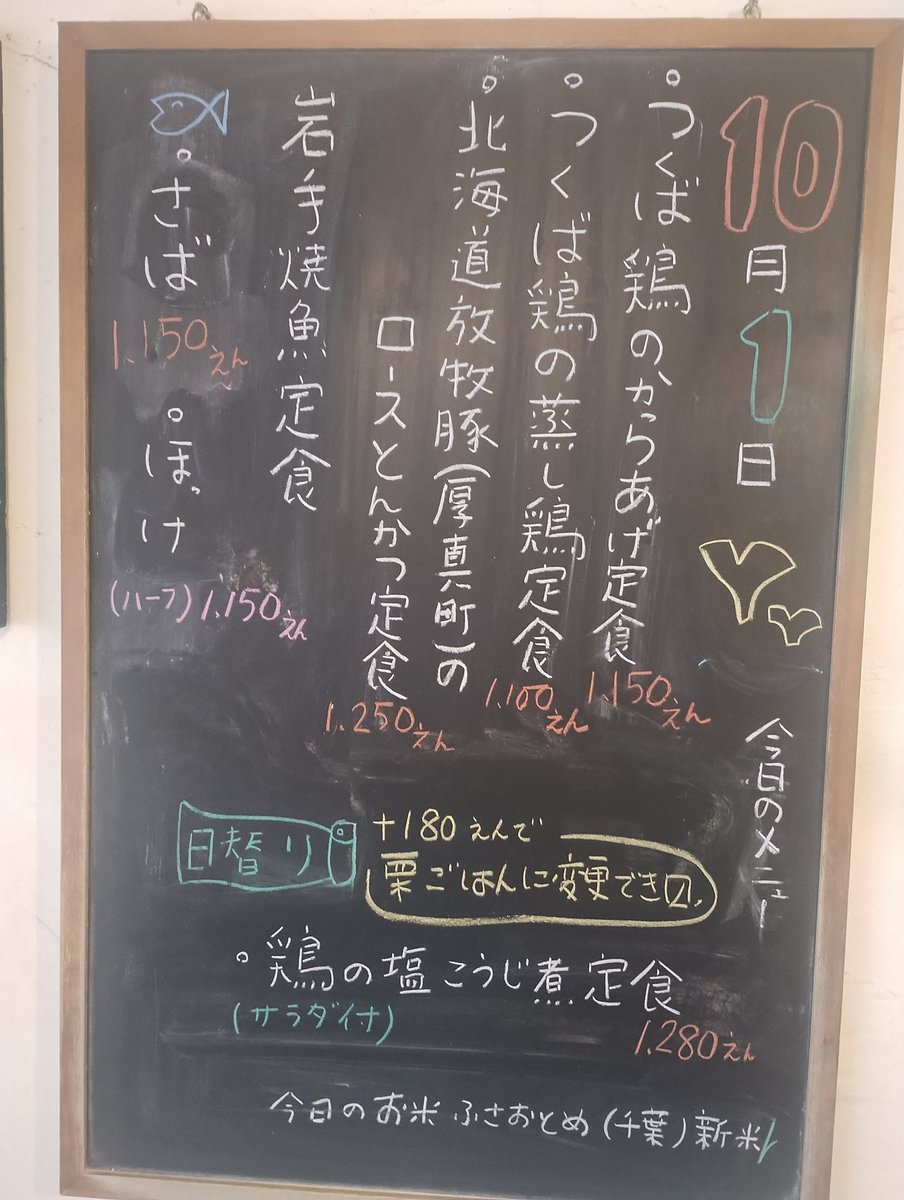 10月1日
今日のメニュー
○つくば鶏のからあげ定食
1.150えん
○つくば鶏の蒸し鶏定食
1.100えん
○北海道放牧豚(厚真町)の
ロースとんかつ定食
1.250えん
岩手焼魚定食
○さば
1.150えん
○ほっけ
(ハーフ)1.150えん
日替り
+180えんで
栗ごはんに変更でき〼。
○鶏の塩こうじ煮定食
(サラダ付)
1.280えん
今日のお米 ふさおとめ(千葉)新米